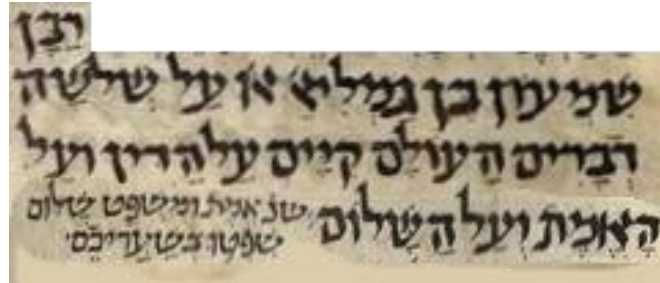 רַבָּן
שִׁמְעוֹן בֶּן גַמְלִיאֵ' או' עַל שְׁלֹשָׁה
דְבָרִים הָעוֹלָם קַיָּים עַל הַדִּין וְעַל
הָאֱמֶת וְעַל הַשָּׁלוֹם
שנ' אמת ומשפט שלום
שפטו בשעריכם